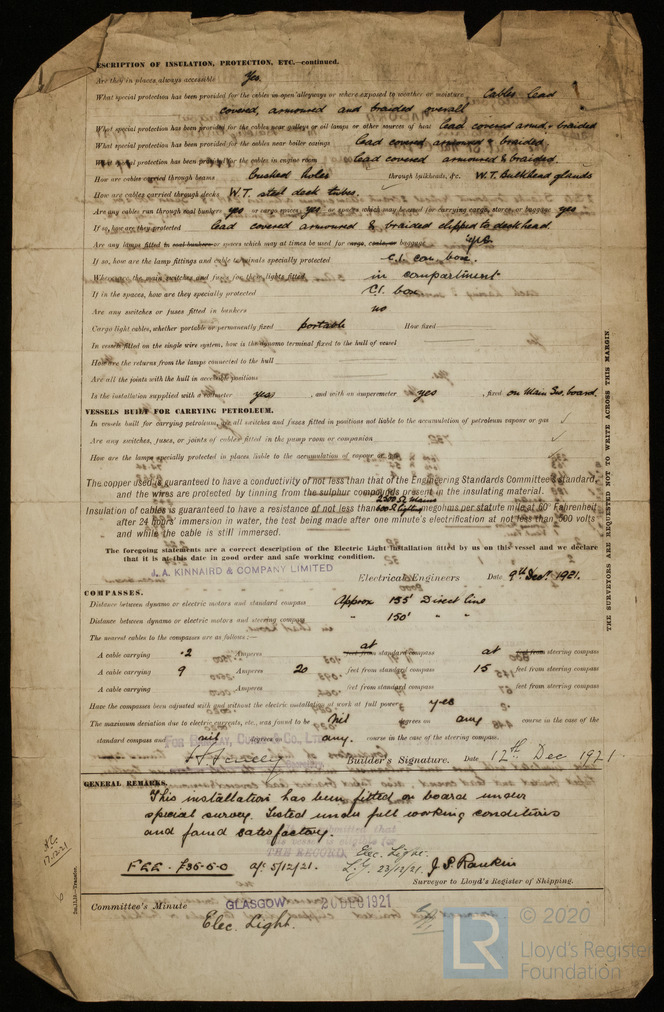 DESCRIPTION OF INSULATION, PROTECTION, ETC.—continued.
Are they in places always accessible Yes.
What special protection has been provided for the cables in open alleyways or where exposed to weather or moisture Cables lead
covered, armoured and braided overall
What special protection has been provided for the cables near galleys or oil lamps or other sources of heat lead covered armd. & braided
What special protection has been provided for the cables near boiler casings lead covered armoured & braided
What special protection has been provided for the cables in engine room lead covered armoured & braided.
How are cables carried through beams bushed holes through bulkheads, &c. W.T. Bulkhead glands
How are cables carried through decks W.T. steel deck tubes.
Are any cables run through coal bunkers yes or cargo spaces yes or spaces which may be used for carrying cargo, stores, or baggage yes
If so, how are they protected lead covered armoured & braided clipped to deckhead.
Are any lamps fitted in coal bunkers or spaces which may at times be used for cargo, coals, or baggage yes
If so, how are the lamp fittings and cable terminals specially protected C.I. con. box.
Where are the main switches and fuses for these lights fitted in compartment
If in the spaces, how are they specially protected C.I. box
Are any switches or fuses fitted in bunkers no
Cargo light cables, whether portable or permanently fixed portable How fixed
In vessels fitted on the single wire system, how is the dynamo terminal fixed to the hull of vessel
How are the returns from the lamps connected to the hull
Are all the joints with the hull in accessible positions
Is the installation supplied with a voltmeter yes, and with an amperemeter yes, fixed on Main Sw. board.
VESSELS BUILT FOR CARRYING PETROLEUM.
In vessels built for carrying petroleum, are all switches and fuses fitted in positions not liable to the accumulation of petroleum vapour or gas
Are any switches, fuses, or joints of cables fitted in the pump room or companion
How are the lamps specially protected in places liable to the accumulation of vapour or gas
The copper used is guaranteed to have a conductivity of not less than that of the Engineering Standards Committee's standard,
and the wires are protected by tinning from the sulphur compounds present in the insulating material.
Insulation of cables is guaranteed to have a resistance of not less than 600 Ω lighting megohms per statute mile at 60° Fahrenheit
after 24 hours' immersion in water, the test being made after one minute's electrification at not less than 500 volts
and while the cable is still immersed.
The foregoing statements are a correct description of the Electric Light Installation fitted by us on this vessel and we declare
that it is at this date in good order and safe working condition.
J. A. KINNAIRD & COMPANY LIMITED
Electrical Engineers Date 9th Decr. 1921.
COMPASSES.
Distance between dynamo or electric motors and standard compass Approx 135' Direct line
Distance between dynamo or electric motors and steering compass " 150' " "
The nearest cables to the compasses are as follows:—
A cable carrying .2 Amperes at feet from standard compass at feet from steering compass
A cable carrying 9 Amperes 20 feet from standard compass 15 feet from steering compass
A cable carrying Amperes feet from standard compass feet from steering compass
Have the compasses been adjusted with and without the electric installation at work at full power yes
The maximum deviation due to electric currents, etc., was found to be Nil degrees on any course in the case of the
standard compass and nil degrees on any. course in the case of the steering compass.
Builder's Signature. Date 12th Dec 1921
GENERAL REMARKS.
This installation has been fitted on board under
special survey. Tested under full working conditions
and found satisfactory.
THE RECORD
Elec. Light.
FEE - £36-5-0 23/12/21. J. S. Rankin
Surveyor to Lloyd's Register of Shipping.
Committee's Minute GLASGOW 20 DEC 1921
Elec. Light.
THE SURVEYORS ARE REQUESTED NOT TO WRITE ACROSS THIS MARGIN
17.12.21
LR
© 2020
Lloyd's Register
Foundation